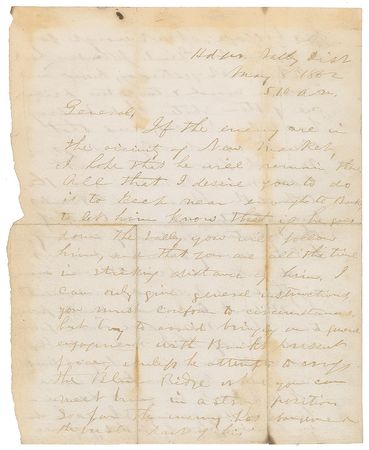 Hdqrs. Vally Dist
May 8 1862
5.10 a.m.
General,
If the enemy are in
the vicinity of New Market,
I hope that he will remain there
All that I desire you to do
is to keep near enough to Banks
to let him know that if he goes
down the Vally you will follow
him, and that you are all the time
in striking distance of him. I
can only give general instructions
you must conform to circumstances
but try to avoid bringing on a general
engagement with Banks present
force, unless he attempts to cross
the Blue Ridge where you can
meet him in a strong position
So far the enemy has
the part of his